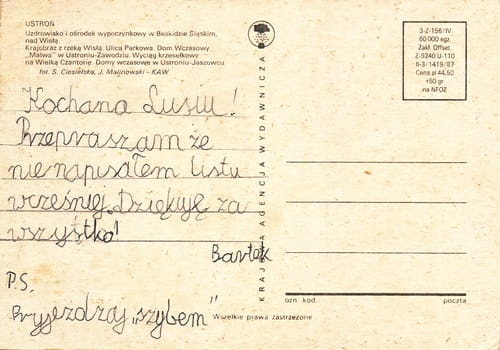 USTROŃ
Uzdrowisko i ośrodek wypoczynkowy w Beskidzie Śląskim,
nad Wisłą.
Krajobraz z rzeką Wisłą. Ulica Parkowa. Dom Wczasowy
„Malwa” w Ustroniu-Zawodziu. Wyciąg krzesełkowy
na Wielką Czantorię. Domy wczasowe w Ustroniu-Jaszowcu
fot. S. Ciesielska, J. Malinowski - KAW
KRAJOWA AGENCJA WYDAWNICZA
3-Z-156/IV
60 000 egz.
Zakł. Offset.
Z-9240 U-110
II-3/1419/87
Cena zł 44.50
+50 gr
na NFOZ
Kochana Lusiu!
Przepraszam że
nie napisałem listu
wcześniej. Dziękuję za
wszystko!
Bartek
P.S.
Pryjezdzaj „szybem”
ozn. kod.
poczta
Wszelkie prawa zastrzeżone